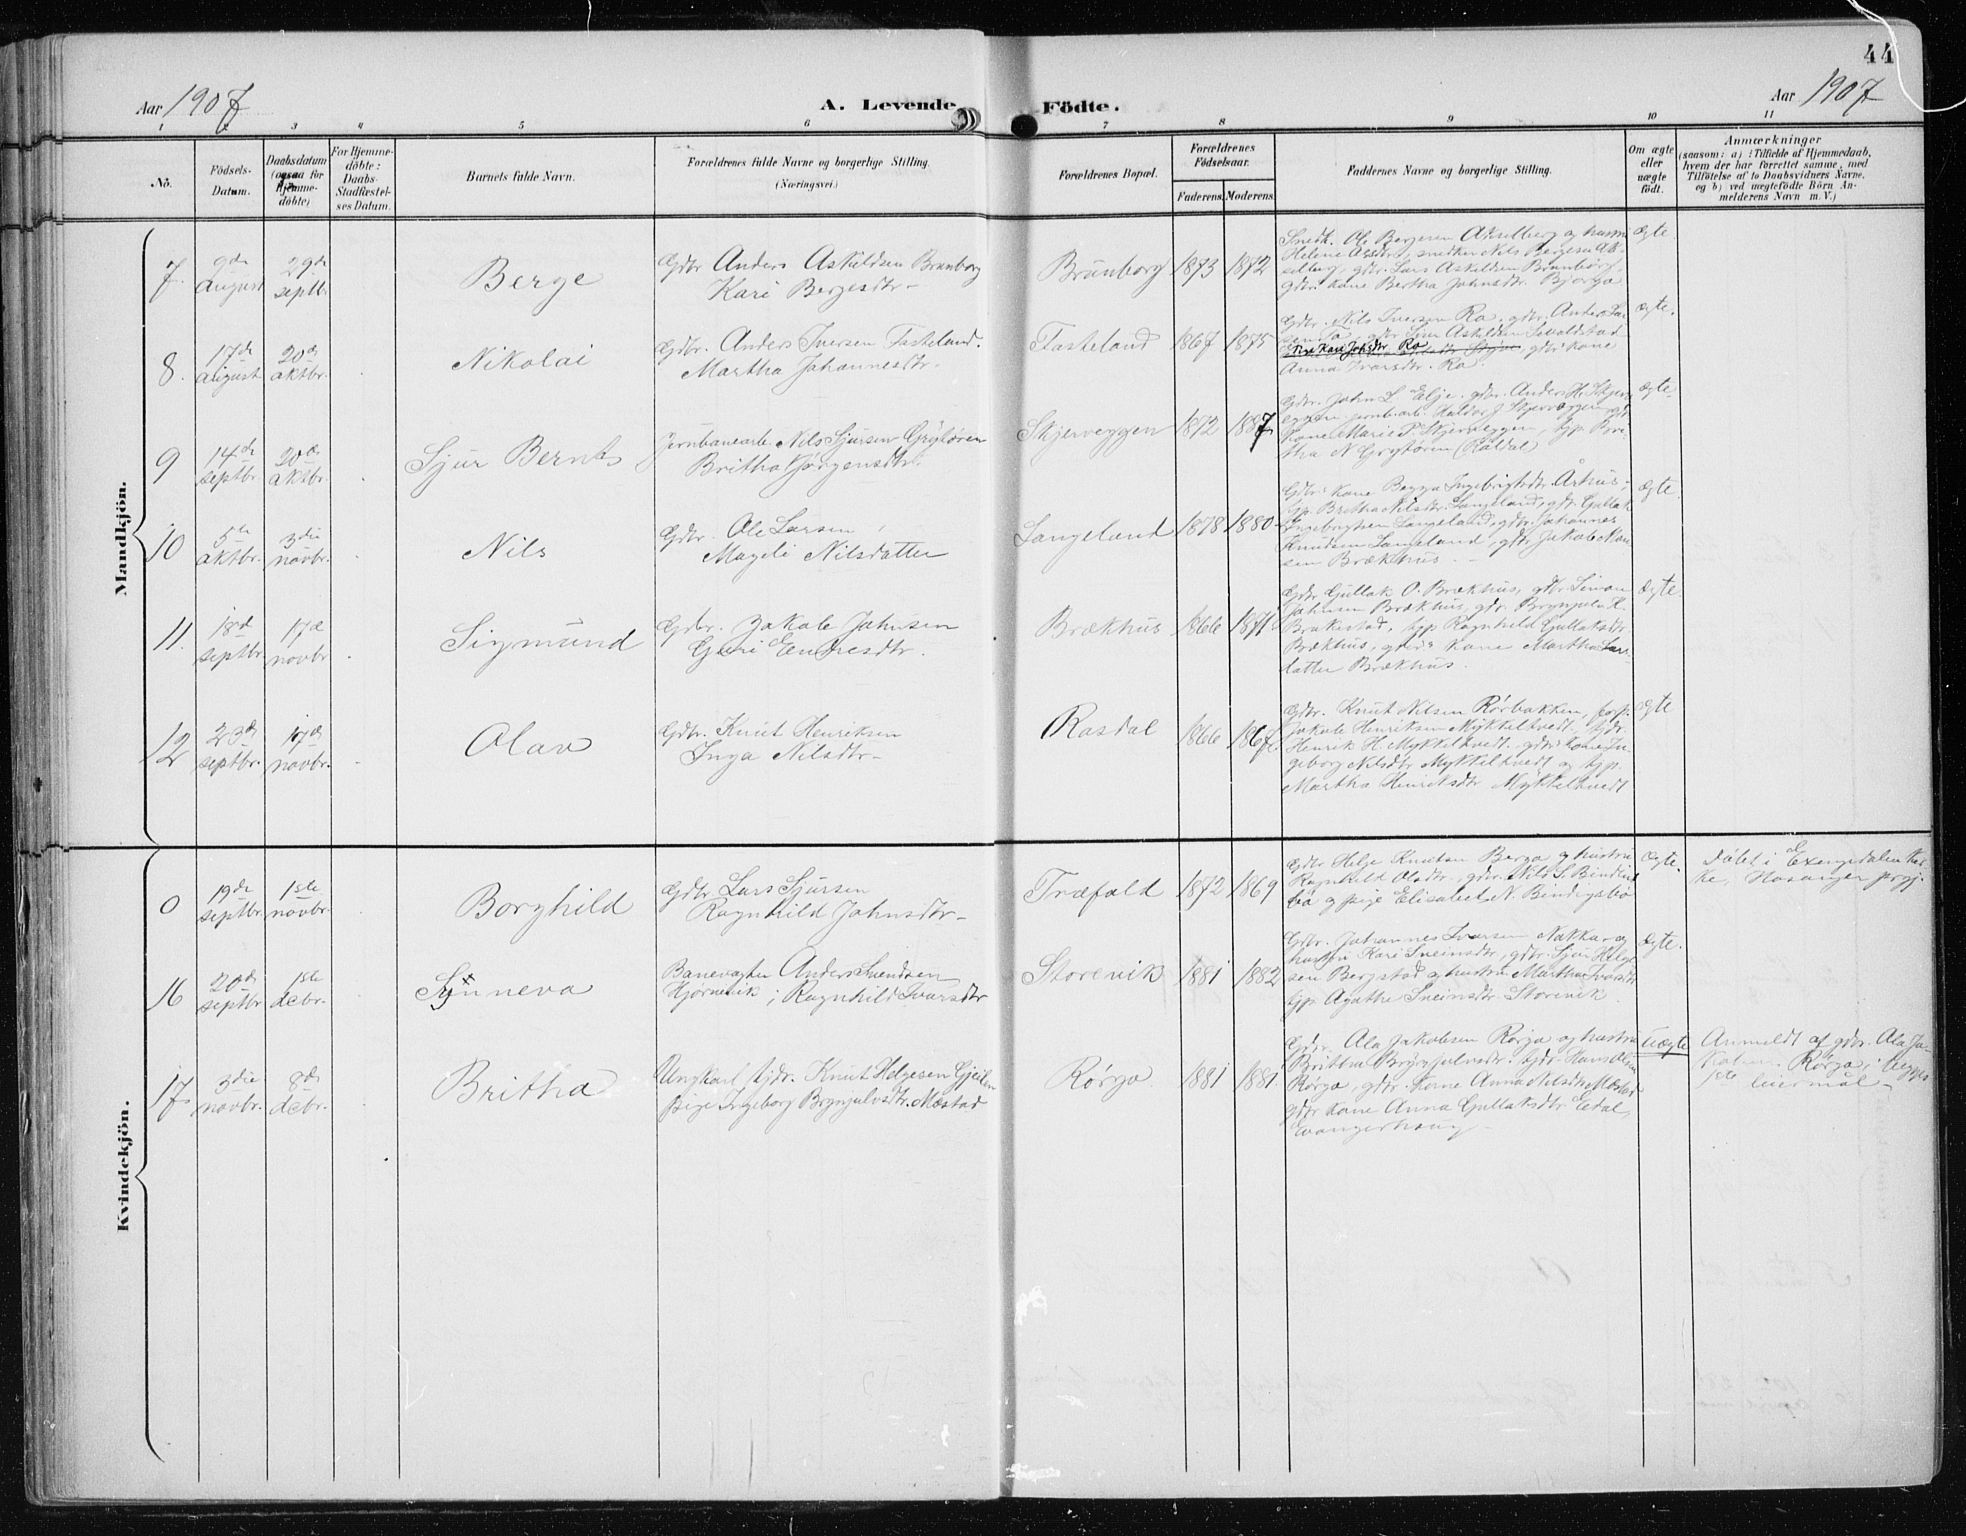 44
Aar 1907
A. Levende Födte.
Aar 1907
1 2 3 4 5 6 7 8 9 10 11
No.
Födsels-Datum.
Daabsdatum (ogsaa for Hjemme-döbte)
For Hjemme-döbte: Daabs-Stadfæstel-ses Datum.
Barnets fulde Navn.
Forældrenes fulde Navne og borgerlige Stilling. (Næringsvei.)
Forældrenes Bopæl.
Forældrenes Födselsaar.
Faderens. Moderens.
Faddernes Navne og borgerlige Stilling.
Om ægte eller uægte födt.
Anmærkninger
(saasom: a) i Tilfælde af Hjemmedaab, hvem der har forrettet samme, med Tilföielse af to Daabsvidners Navne, og b) ved uægtefödte Börn An-melderens Navn m. V.)
Mandkjön.
7. 9de August 29de septbr.
Berge
Gdbr Anders Askildsen Brunborg
Kari Bergesdtr-
Brunborg 1873 1872
Snedk. Ole Bergesen Akselberg og hustru
Helene, snedker Nils Bergesen Ak-
selberg, gdbr. Lars Askildsen Brunborg,
gdbr. kone Bertha Johnsdtr. Bjørgo
ægte
8. 17de August 20de oktbr.
Nikolai
Gdbr. Anders Iversen Fasteland.
Martha Johannesdtr.
Fasteland 1867 1875
Gdbr. Nils Iversen Ra, gdbr. Anders
pige Kari Johsdtr Ra gdbr kone
Anna Ivarsdtr. Ra.
ægte.
9 14de septbr 20de oktbr.
Sjur Bernt
Jernbanearb. Nils Sjursen Grytøren
Britha Jørgensdtr.
Skjerveggen 1872 1887
Gdbr. John L Elje. gdbr. Anders H. Skjerv-
eggen jernb.arb. Haldor J Skjerveggen gdbr
kone Marie P. Skjerveggen, tjp. Bri-
tha N Grytøren (Røldal)
ægte-
10 5te oktbr. 3die novbr.
Nils
Gdbr. Ole Larsen
Mageli Nilsdatter
Langeland 1878 1880
Gdbr kone Ingebrigtsdtr. Århus,
tjp. Britha Nilsdtr. Langeland, gdbr. Gullak
Ingebrigtsen Langeland, gdbr. Johannes
Knudsen Langeland, gdbr. Jakob
sen Brækhus
ægte.
11. 18de septbr. 17de novbr.
Sigmund
Gdbr. Jakob Johnsen
Guri Endresdtr.
Brækhus 1866 1871
Gdbr Gullak O. Brækhus, gdbr. Simon
Johnsen Brækhus, gdbr. Brynjulv K.
Brakestad, tjp Ragnhild Gullaksdtr
Brækhus, gdbrs kone Martha Lars-
datter Brækhus.
ægte.
12 23de septbr. 17de novbr.
Olav
Gdbr. Knut Henriksen
Inga Nilsdtr-
Rasdal 1866 1867
Gdbr. Knut Nilsen Rørbakken, forp.
Jakob Henriksen Mykkeltvedt, tjdr.
Henrik H. Mykkeltvedt, gdbr kone In-
geborg Nilsdtr Mykkeltvedt og tjp.
Martha Henriksdtr Mykkeltvedt
ægte
Kvindekjön.
0 19de septbr. 1ste novbr.
Borghild
Gdbr Lars Sjursen
Ragnhild Johnsdtr-
Træfald 1872 1869
Gdbr Helge Knutsen Berga og hustru
Ragnhild Olsdtr, gdbr. Nils S. Binders-
bø og pige Elisabet N. Bindersbø
Ægte.
Døbt i Exengedalen Kir-
ke, Hosanger prgj.
16 20de septbr 1ste decbr.
Synneva
Banevogter Anders Svendsen
Hjørnevik; Ragnhild Ivarsdtr
Storevik 1881 1882
Gdbr. Johannes Ivarsen Nakka og
hustru Kari Sveinsdtr, gdbr. Sjur Helge
sen Bergstad og hustru Martha Ivarsdtr
tjp. Agathe Sveinsdtr Storevik.
ægte.
17 3die novbr. 8de decbr.
Britha
Ungkarl tjdr. Knut Helgesen Gjeilen
Pige Ingeborg Brynjulvsdtr. Mestad
Rørgo 1881 1881
Gdbr. Ola Jakobsen Rørgo og hustru
Britha Brynjulvsdtr. tjdr. Hans
Rørgo, gdbr. kone Anna Nilsdtr Mestad
gdbr kone Anna Gullaksdtr Eidal,
Evangersoug
uægte
Anmeldt af gdbr. Ola Ja-
kobsen Rørgo; begges
1ste leiermål-